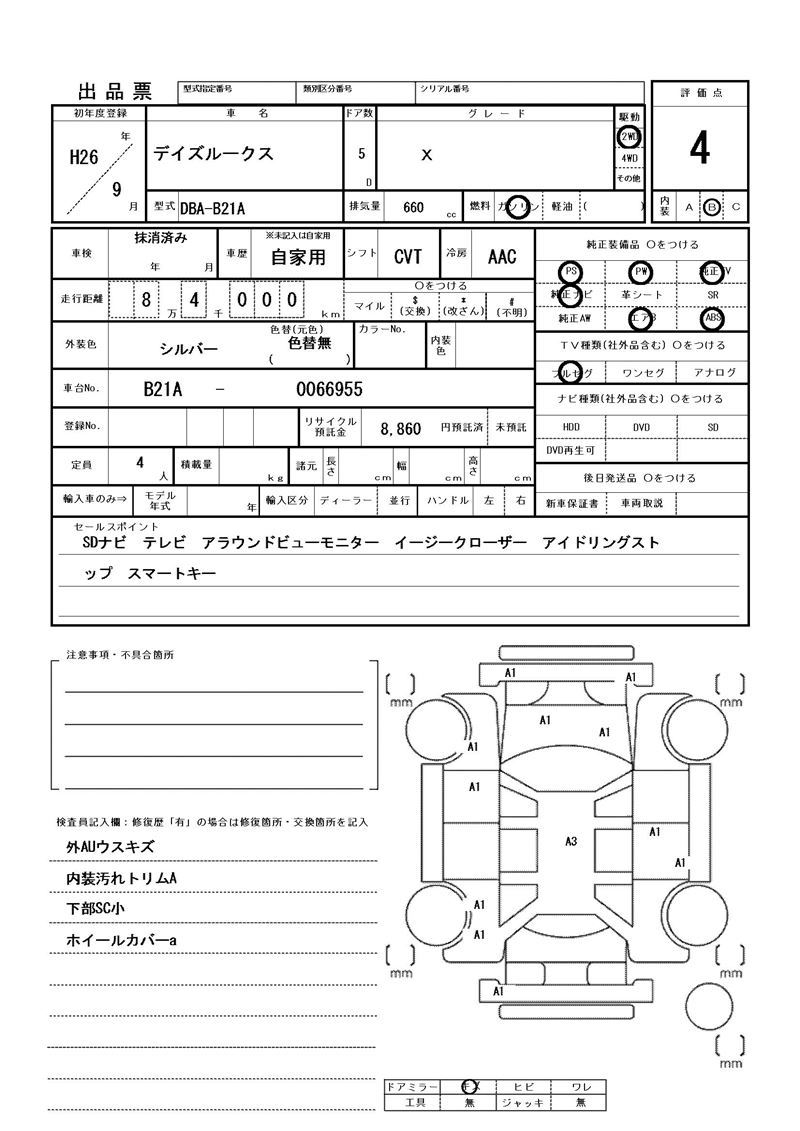 出品票
型式指定番号 類別区分番号 シリアル番号
初年度登録 車名 ドア数 グレード 駆動 評価点
H26年 9月 デイズルークス 5D X 2WD 4WD その他 4
型式 DBA-B21A 排気量 660cc 燃料 ガソリン 軽油 ( ) 内装 A B C
車検 抹消済み 年 月 車歴 ※未記入は自家用 自家用 シフト CVT 冷房 AAC 純正装備品 〇をつける
PS PW 純正TV
走行距離 8万4千000km 〇をつける マイル $(交換) *(改ざん) #(不明) 純正ナビ 革シート SR
純正AW エアB ABS
外装色 シルバー 色替(元色) 色替無 ( ) カラーNo. 内装色 TV種類(社外品含む) 〇をつける
フルセグ ワンセグ アナログ
車台No. B21A － 0066955 ナビ種類(社外品含む) 〇をつける
登録No. リサイクル預託金 8,860 円預託済 未預託 HDD DVD SD
DVD再生可
定員 4人 積載量 kg 諸元 長さ cm 幅 cm 高さ cm 後日発送品 〇をつける
輸入車のみ⇒ モデル年式 年 輸入区分 ディーラー 並行 ハンドル 左 右 新車保証書 車両取説
セールスポイント
SDナビ テレビ アラウンドビューモニター イージークローザー アイドリングスト
ップ スマートキー
注意事項・不具合箇所
検査員記入欄：修復歴「有」の場合は修復箇所・交換箇所を記入
外AUウスキズ
内装汚れトリムA
下部SC小
ホイールカバーa
A1 A1
mm mm
A1
A1
A1
A1
A1
A3
A1
A1
A1
mm mm
A1
mm
ドアミラー キズ ヒビ ワレ
工具 無 ジャッキ 無